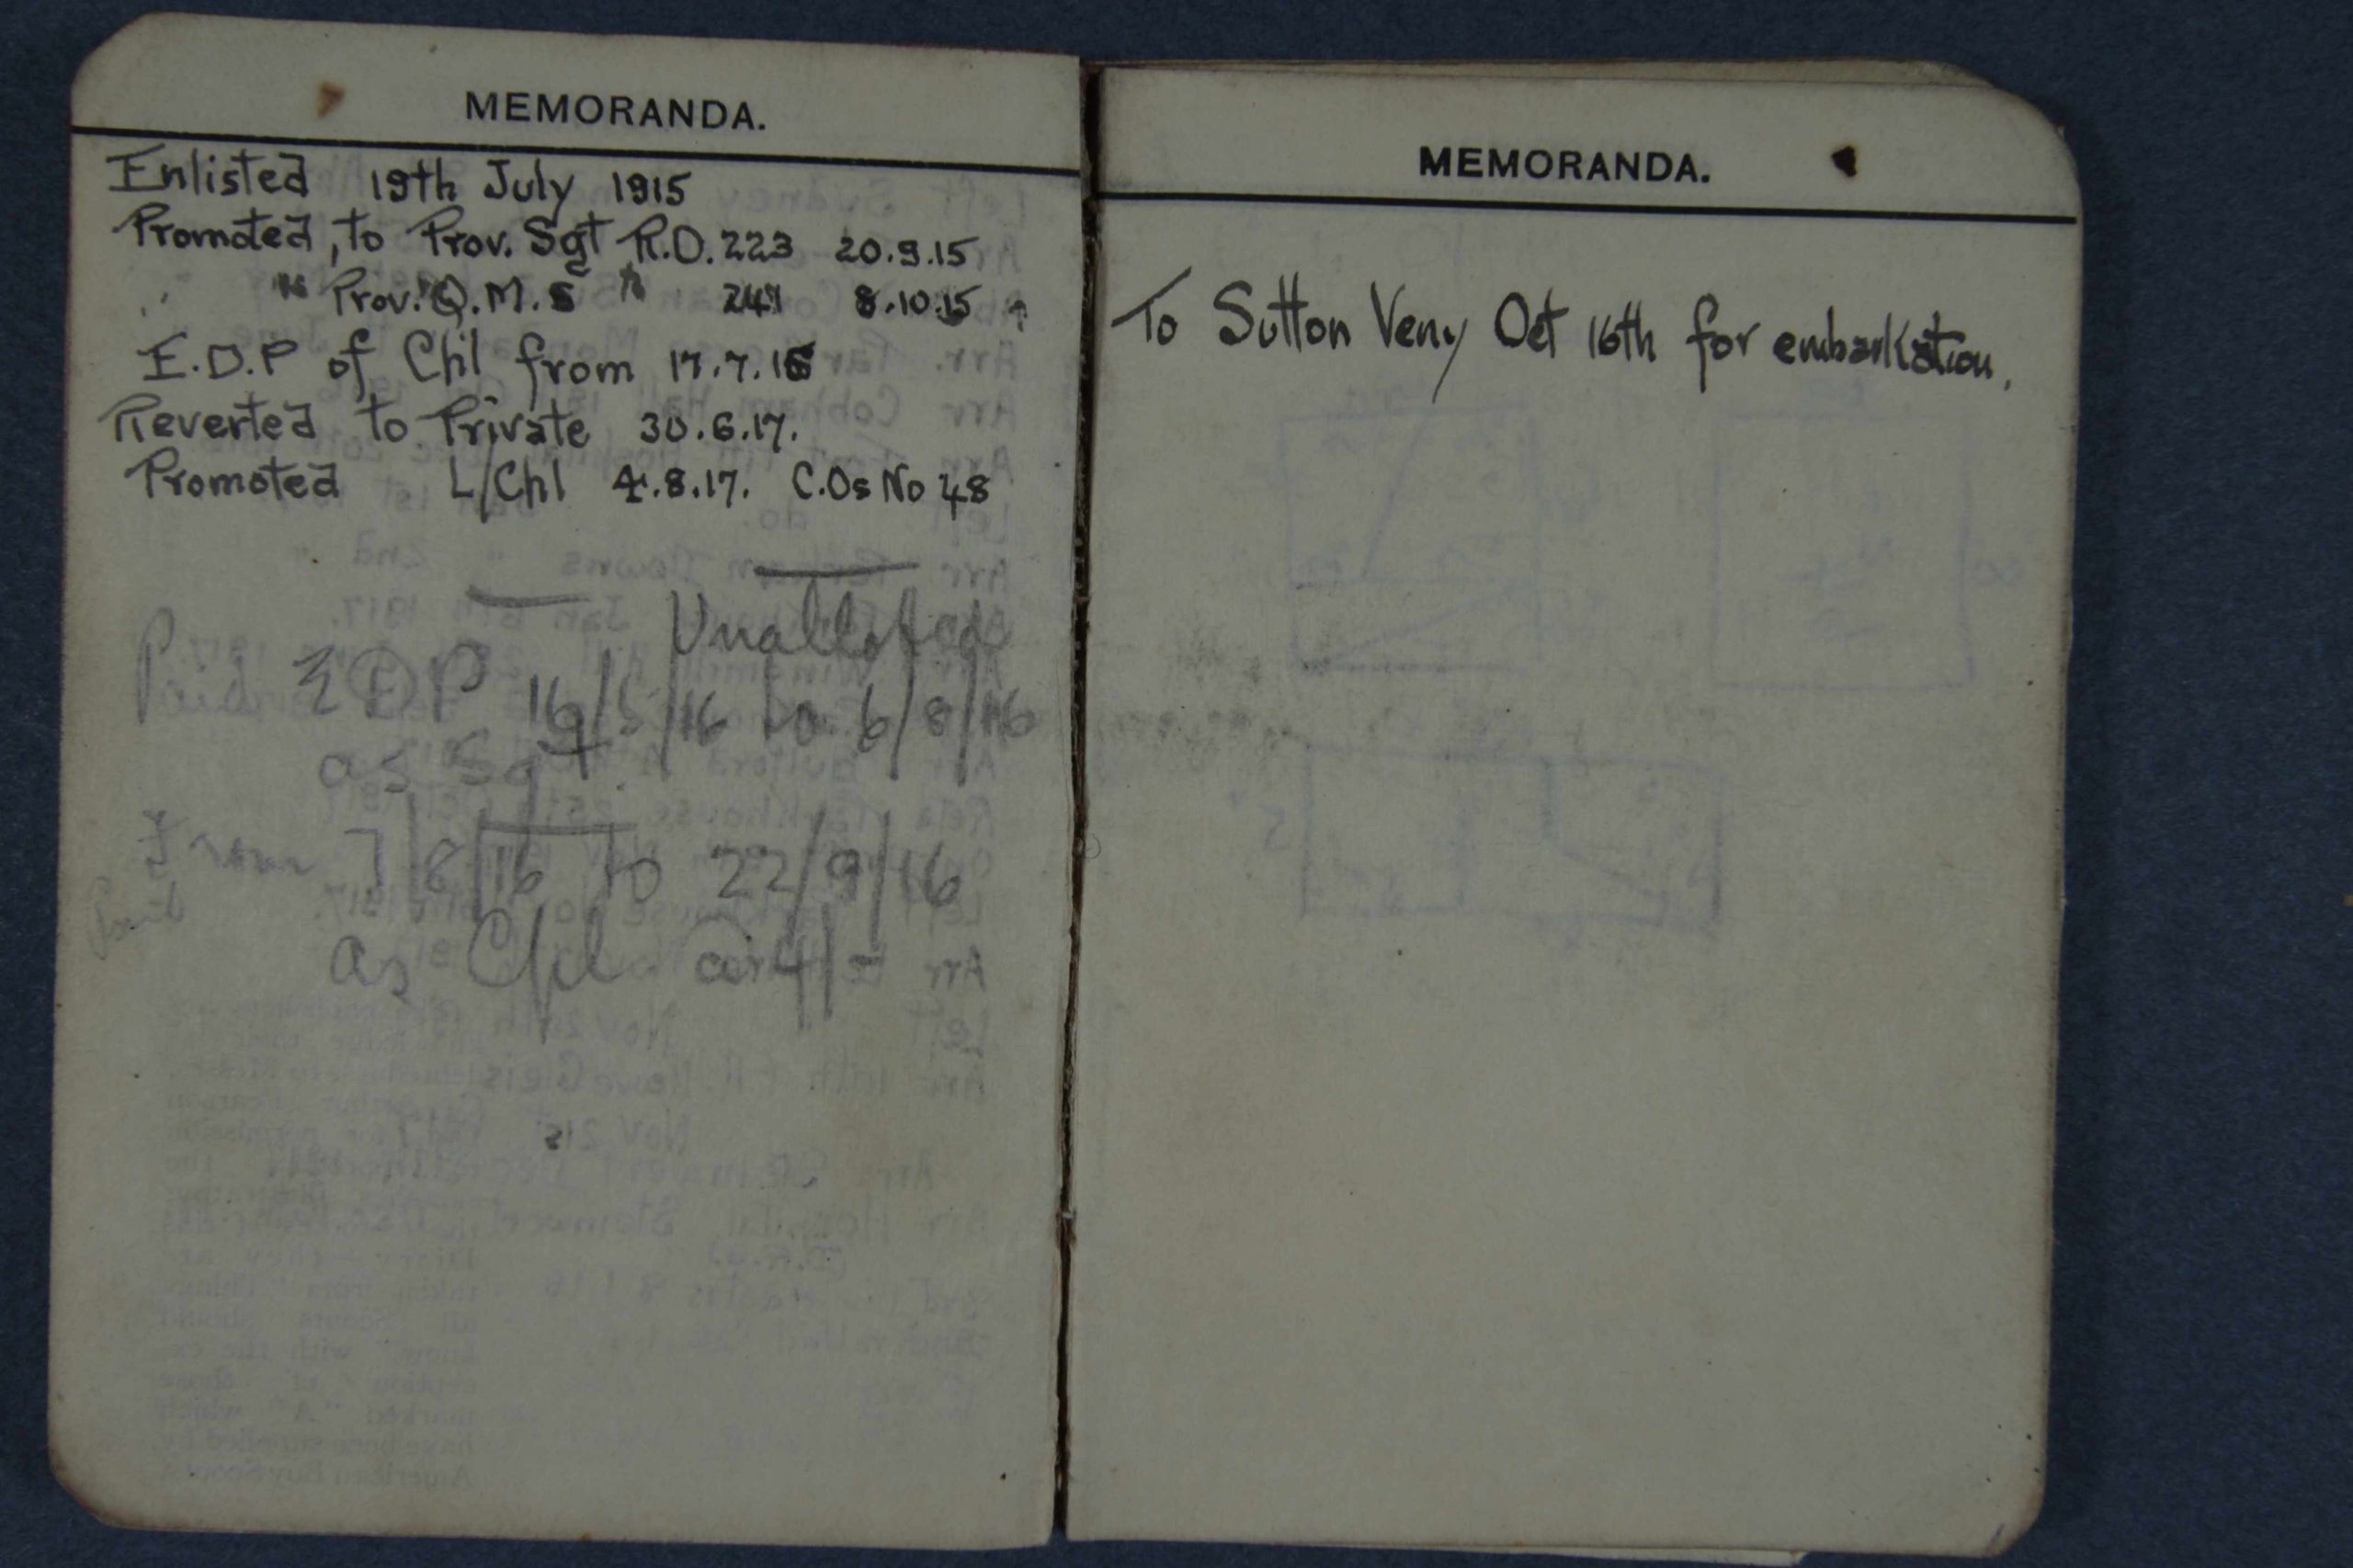 MEMORANDA.
Enlisted 19th July 1915
Promoted, to Prov. Sgt R.O. 223 20.9.15
" Prov. Q.M.S " 241 8.10.15
E.D.P of Cpl from 17.7.16
Reverted to Private 30.6.17.
Promoted L/Cpl 4.8.17. C.Os No 48
Unallotted
EDP 16/5/16 to 6/8/16
as Sgt
From 7/8/16 to 22/9/16
as Cpl
MEMORANDA.
To Sutton Veny Oct 16th for embarkation.